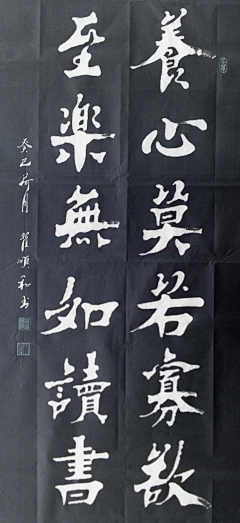 養心莫若寡欲
至樂無如讀書
癸巳荷月 翟順和書